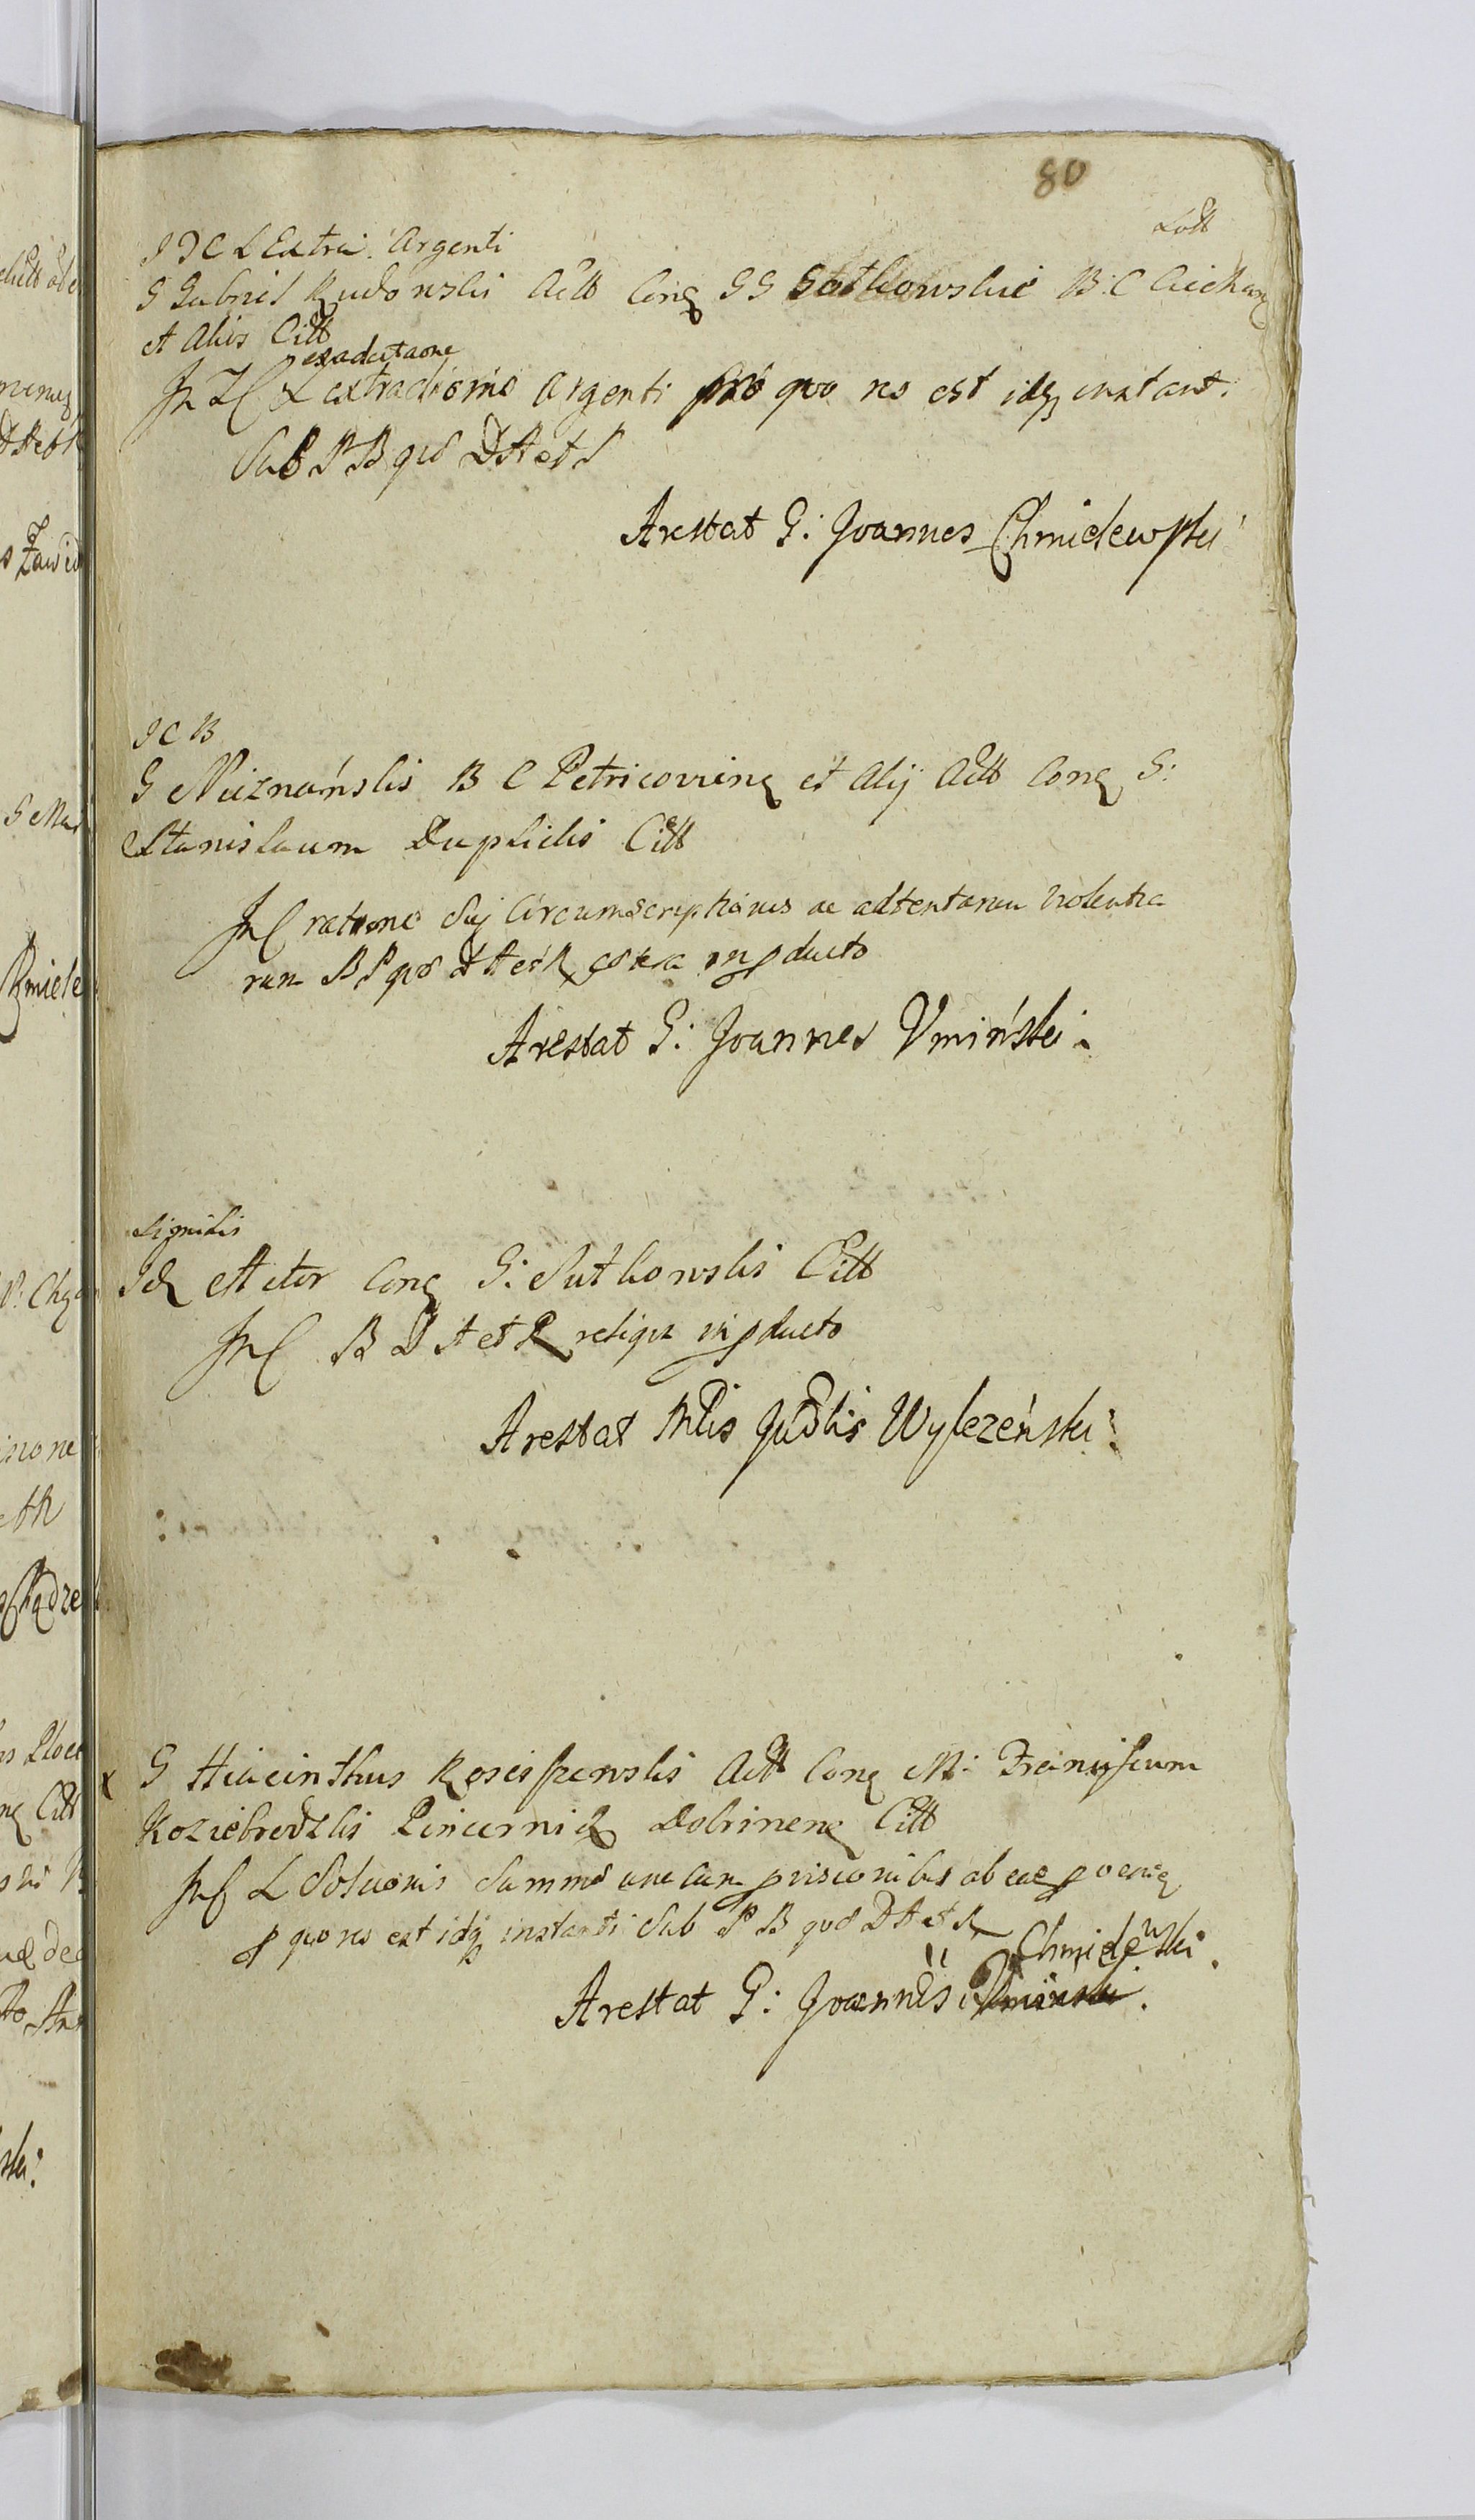 80
I I C L Extra. Argenti
G Gabriel Rudowski Actt Conq GG Sutkowskie B: C Ciechan
et Aliis Citt
exadutaone
In I C L extraditionis argenti pro quo res est idq instant.
Sub P B quo D A et P
Arestat G: Joannes Chmielewski
I C B
G Nieznański B C Petricovienq et alij Actt Conq G:
Stanislaum Duplicki Citt
In C ratione Sui Circumscriptionis ac adtentarum violentia
rum B P quo D A et R in pducto
Arestat G: Joannes Vmiński.
Lignicki
Idq Actor Conq G: Sutkowski Citt
In C B D A et R reliqu in pducto
Arestat Mlis Judlis Wylezeński:
x G Hiacinthus Rosciszewski Actt Conq M: Franciscum
Koziebrodzki Pincernidq Dobrinenq Citt
In C L Solutionis Summae una cum prisionibus ab eae poenq
p quo res est idq instanti Sub P B quo D A et R
Chmielewski.
Arestat G: Joannes Vmiński.